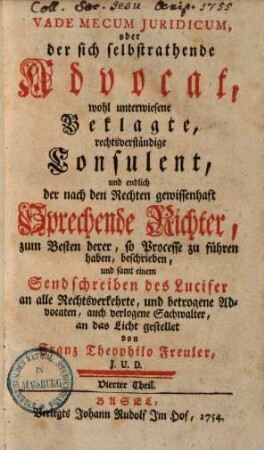 Coll. Soc. Jesu 1755
VADE MECUM JURIDICUM,
oder
der sich selbstrathende
Advocat,
wohl unterwiesene
Beklagte,
rechtsverständige
Consulent,
und endlich
der nach den Rechten gewissenhaft
Sprechende Richter,
zum Besten derer, so Processe zu führen
haben, beschrieben,
und samt einem
Sendschreiben des Lucifer
an alle Rechtsverkehrte, und betrogene Ad-
vocaten, auch verlogene Sachwalter,
an das Licht gestellet
von
Franz Theophilo Freuler,
J. U. D.
Vierter Theil.
BASEL,
Verlegts Johann Rudolf Im Hof, 1754.
IN AUGSBURG